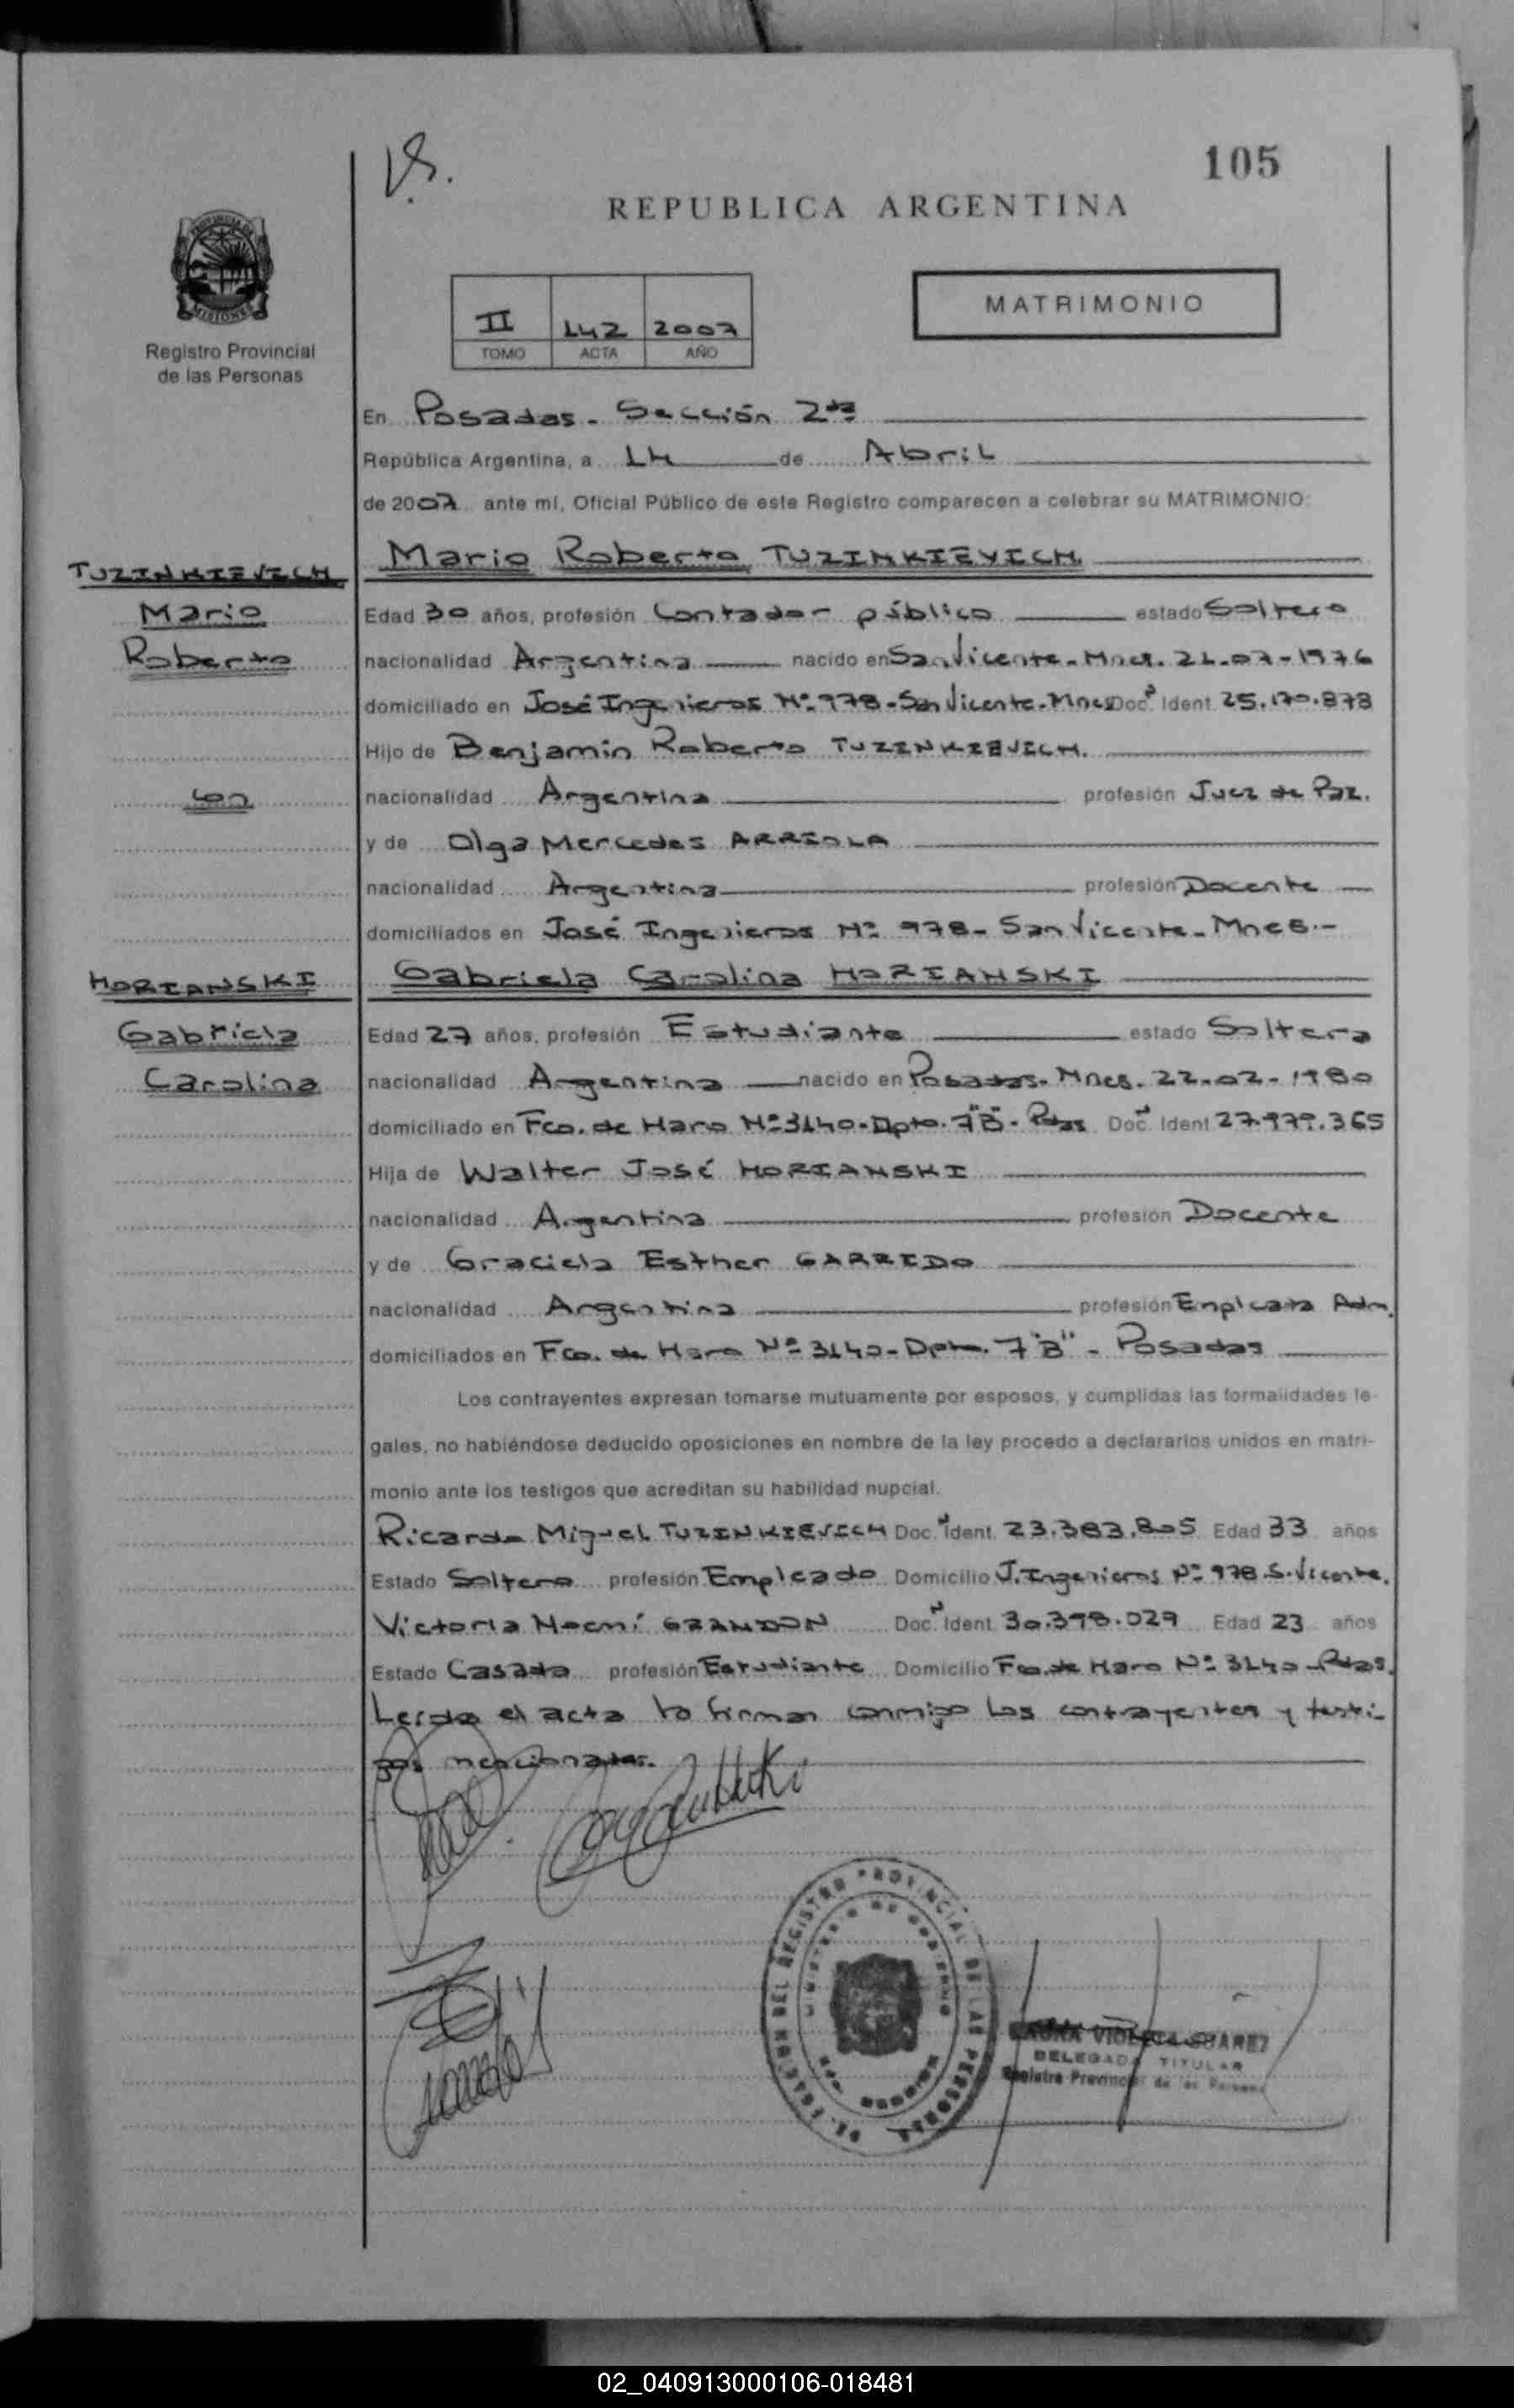 V.S.
105
REPUBLICA ARGENTINA
PROVINCIA DE
MISIONES
Registro Provincial
de las Personas
MATRIMONIO
II 142 2007
TOMO ACTA AÑO
En Posadas - Sección 2da
República Argentina, a 14 de Abril
de 2007 ante mí, Oficial Público de este Registro comparecen a celebrar su MATRIMONIO:
TUZINKIEVICH
Mario Roberto TUZINKIEVICH
Mario
Edad 30 años, profesión Contador público estado Soltero
Roberto
nacionalidad Argentina nacido en San Vicente - Mnes. 21-07-1976
domiciliado en José Ingenieros Nº 978 - San Vicente - Mnes Doc. Ident. 25.170.878
Hijo de Benjamín Roberto TUZINKIEVICH.
con
nacionalidad Argentina profesión Juez de Paz.
y de Olga Mercedes ARRIOLA
nacionalidad Argentina profesión Docente
domiciliados en José Ingenieros Nº 978 - San Vicente - Mnes.-
HORIANSKI
Gabriela Carolina HORIANSKI
Gabriela
Edad 27 años, profesión Estudiante estado Soltera
Carolina
nacionalidad Argentina nacido en Posadas - Mnes. 22-02-1980
domiciliado en Fco. de Haro Nº 3140 - Dpto. 7"B" - Pdas Doc. Ident. 27.979.365
Hija de Walter José HORIANSKI
nacionalidad Argentina profesión Docente
y de Graciela Esther GARRIDO
nacionalidad Argentina profesión Empleada Adm.
domiciliados en Fco. de Haro Nº 3140 - Dpto. 7"B" - Posadas
Los contrayentes expresan tomarse mutuamente por esposos, y cumplidas las formalidades le-
gales, no habiéndose deducido oposiciones en nombre de la ley procedo a declararlos unidos en matri-
monio ante los testigos que acreditan su habilidad nupcial.
Ricardo Miguel TUZINKIEVICH Doc. Ident. 23.383.805 Edad 33 años
Estado Soltero profesión Empleado Domicilio J. Ingenieros Nº 978 S. Vicente.
Victoria Noemí GRANDON Doc. Ident. 30.398.029 Edad 23 años
Estado Casada profesión Estudiante Domicilio Fco. de Haro Nº 3140 - Pdas.
Leída el acta la firman conmigo los contrayentes y testi-
gos mencionados.
DELEGACION DEL REGISTRO PROVINCIAL DE LAS PERSONAS
MINISTERIO DE GOBIERNO
MISIONES
LAURA VIOLETA SUAREZ
DELEGADA TITULAR
Registro Provincial de las Personas
02_040913000106-018481